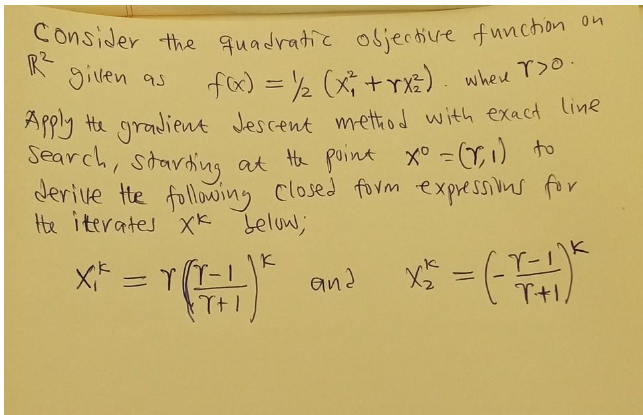 Consider the quadratic objective function on
R² given as f(x) = ½ (x₁² + γx₂²). where γ>0.
Apply the gradient descent method with exact line
search, starting at the point x⁰ = (γ,1) to
derive the following closed form expressions for
the iterates xᵏ below;
X₁ᵏ = γ((γ-1)/(γ+1))ᵏ and X₂ᵏ = (-(γ-1)/(γ+1))ᵏ